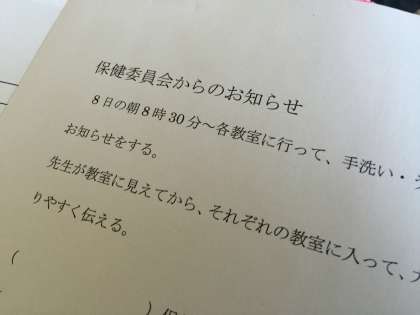 保健委員会からのお知らせ
8日の朝8時30分～各教室に行って、手洗い・
お知らせをする。
先生が教室に見えてから、それぞれの教室に入って、
りやすく伝える。
(
)